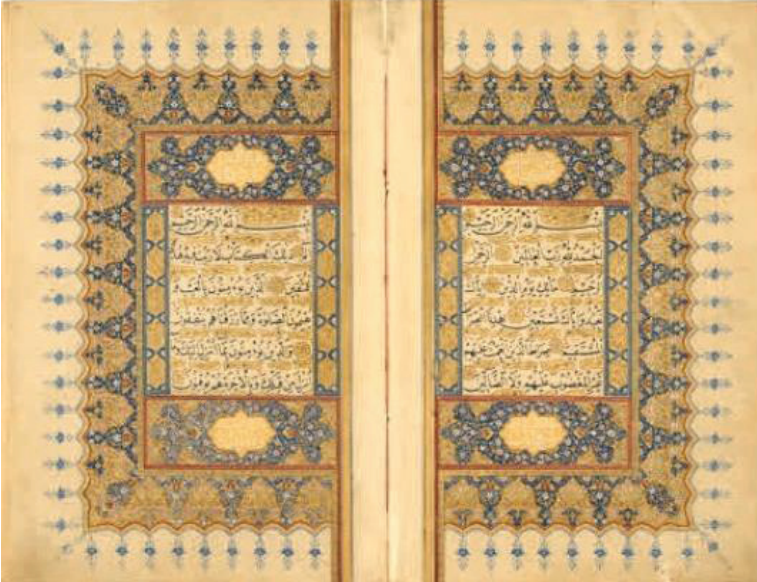 بِسْمِ اللهِ الرَّحْمٰنِ الرَّحِيمِ
اَلْحَمْدُ لِلّٰهِ رَبِّ الْعَالَمِينَ الرَّحْمٰنِ
الرَّحِيمِ مَالِكِ يَوْمِ الدِّينِ اِيَّاكَ
نَعْبُدُ وَاِيَّاكَ نَسْتَعِينُ اِهْدِنَا الصِّرَاطَ
الْمُسْتَقِيمَ صِرَاطَ الَّذِينَ اَنْعَمْتَ عَلَيْهِمْ
غَيْرِ الْمَغْضُوبِ عَلَيْهِمْ وَلَا الضَّالِّينَ
بِسْمِ اللهِ الرَّحْمٰنِ الرَّحِيمِ
الٓمٓ ذٰلِكَ الْكِتَابُ لَا رَيْبَ فِيهِ هُدًى
لِلْمُتَّقِينَ الَّذِينَ يُؤْمِنُونَ بِالْغَيْبِ وَ
يُقِيمُونَ الصَّلٰوةَ وَمِمَّا رَزَقْنَاهُمْ يُنْفِقُونَ
وَالَّذِينَ يُؤْمِنُونَ بِمَا اُنْزِلَ اِلَيْكَ وَمَا
اُنْزِلَ مِنْ قَبْلِكَ وَبِالْاٰخِرَةِ هُمْ يُوقِنُونَ